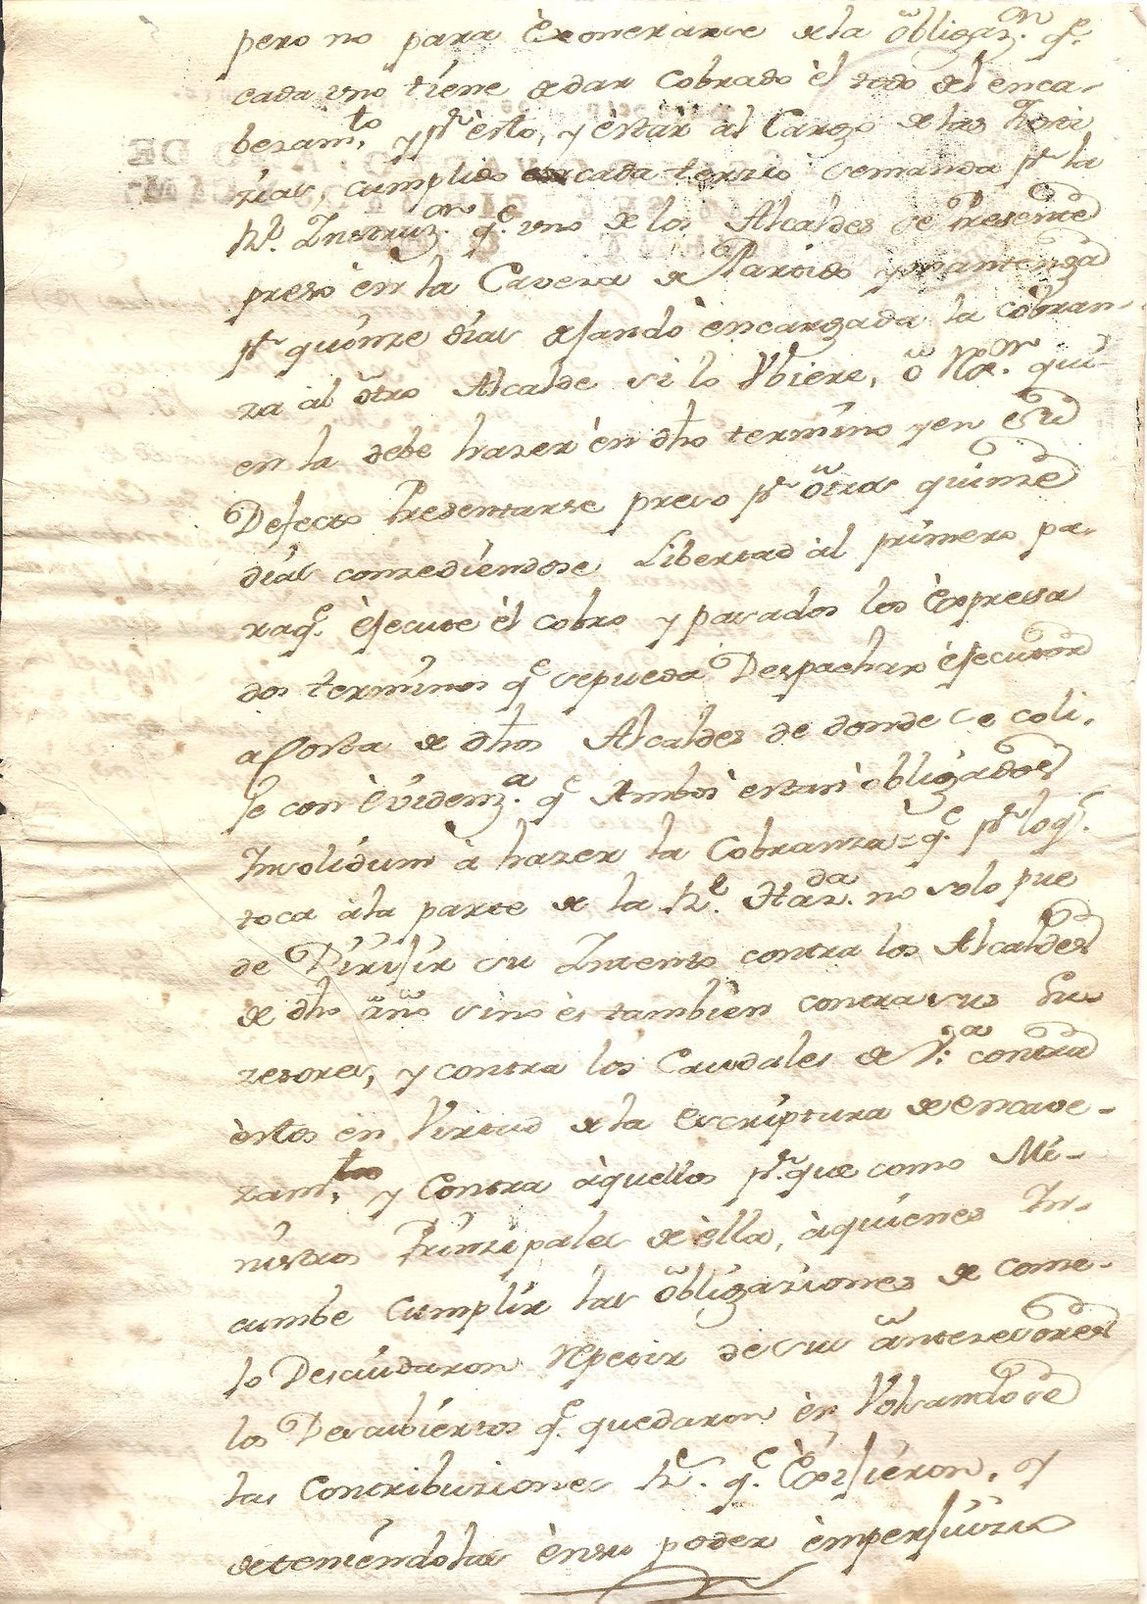 pero no para Exonerarse dela obligaz.on q.e
cada uno tiene de dar cobrado èl todo del enca-
bezam.to, y p.r ésto, y èstàr al Cargo de las Justi
zias, cumplido cada terzio semanda p.r la
R.l Instruz.on q.e uno de los Alcaldes se Presente
preso èn la Cavesa de Partido y mantenga
p.r quinze dias dejando èncargada la cobran-
za al ôtro Alcalde si lo Ubiere, ô Rex.or qui
en la debe hazer èn dho termino y en su
Defecto Presentarse preso p.r ôtros quinze
dias conzediendose Libertad àl primero pa-
raq.e èjecute èl cobro y pasados los Expresa
dos terminos q.e sepueda Despachar èjecutor
a Costa de dhos Alcaldes de donde se coli-
je con Evidenz.a q.e Ambos estan òbligados
Insolidum à hazer la Cobranza = q.e p.r loq.e
toca àla parte de la R.l Haz.da no solo pue
de Dirijir su Intento contra los Alcaldes
de dho año sino es tambien contra sus Su
zesores, y contra los Caudales de V.a contra
èstos en Virtud dela Escriptura de encave-
zam.to, y Contra àquellos p.r que como Mi-
nistros Prinzipales de èlla, àquienes In-
cumbe Cumplir las ôbligaziones de come-
lo Descuidaron Repetir de sus ântesesores
los Descubiertos q.e quedaron èn Volsandose
las Contribuziones R.s q.e Exijieron, y
deteniendolas ènsu poder èmperjuizio